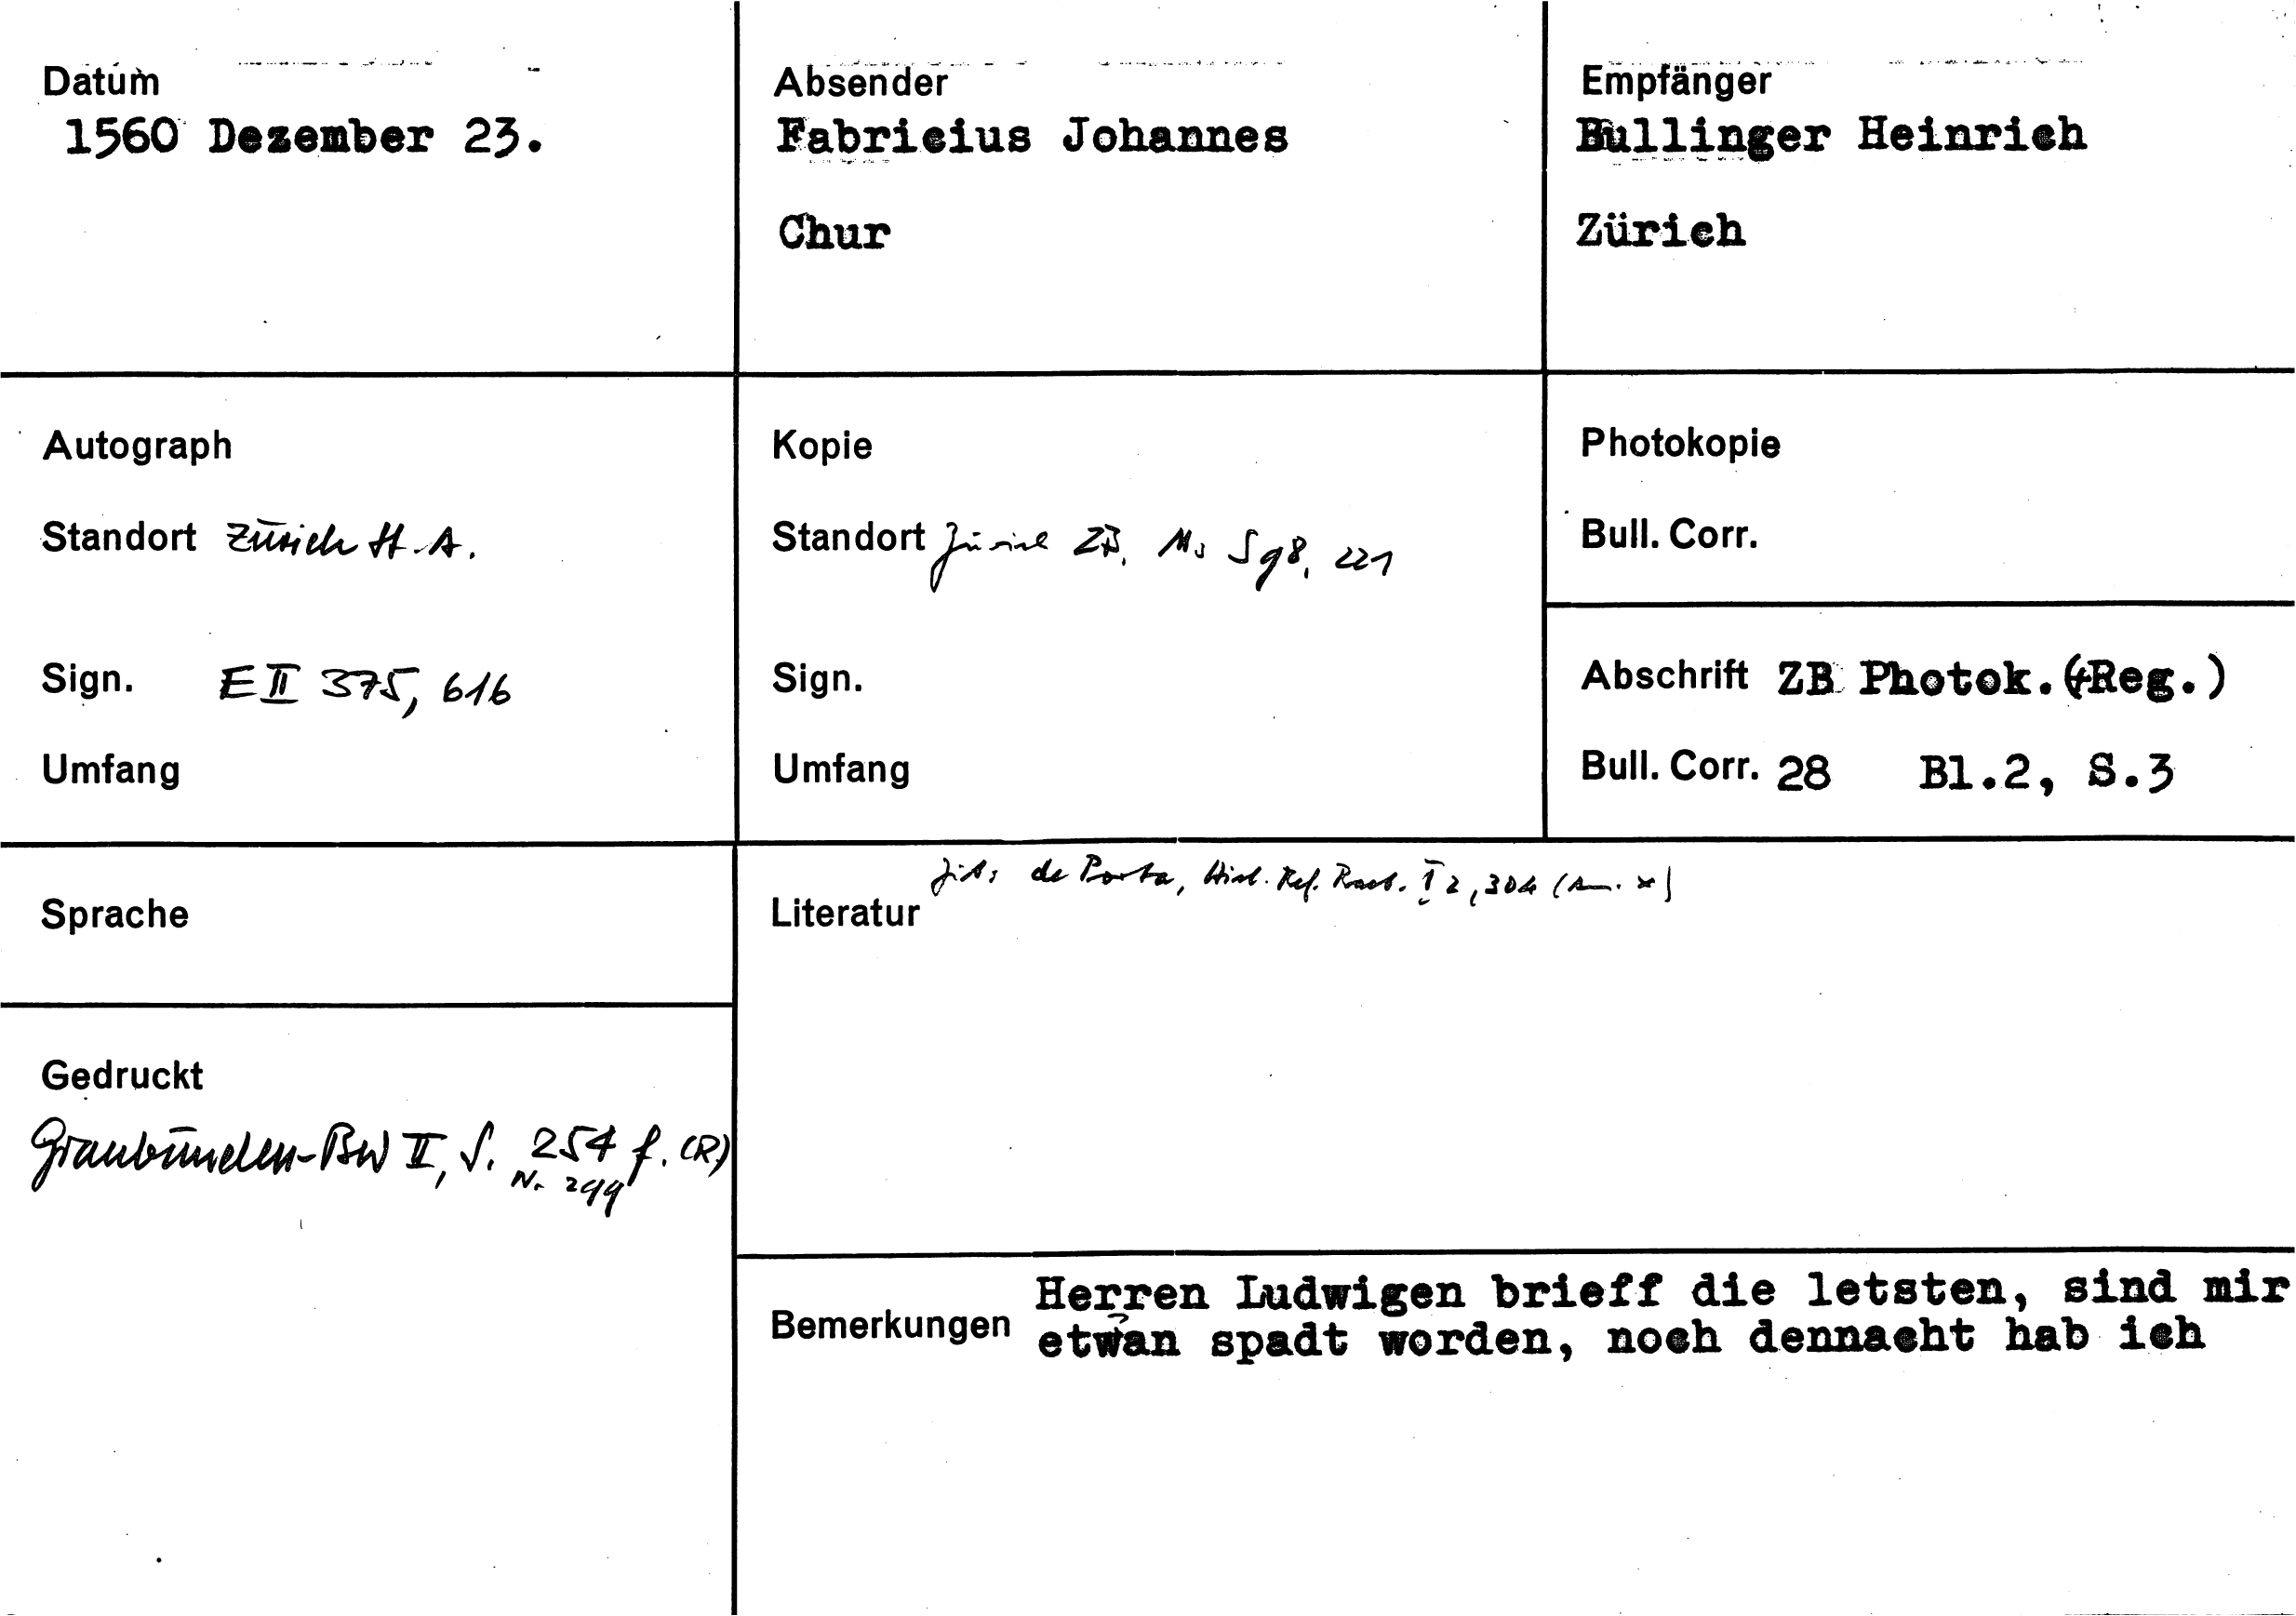 Datum
1560 Dezember 23.
Absender
Fabricius Johannes
Chur
Empfänger
Bullinger Heinrich
Zürich
Autograph
Standort Zürich St.A.
Sign. E II 375, 616
Umfang
Kopie
Standort Zürich ZB, Ms S 98, 221
Sign.
Umfang
Photokopie
Bull. Corr.
Abschrift ZB Photok. (+Reg.)
Bull. Corr. 28 Bl.2, S.3
Sprache
Gedruckt
Graubünden-BW II, S. 254 f. (R)
Nr. 299
Zit: de Porta, Hist. Ref. Raet. I 2, 304 (Anm. x)
Literatur
Bemerkungen
Herren Ludwigen brieff die letsten, sind mir
etwan spadt worden, noch dennacht hab ich